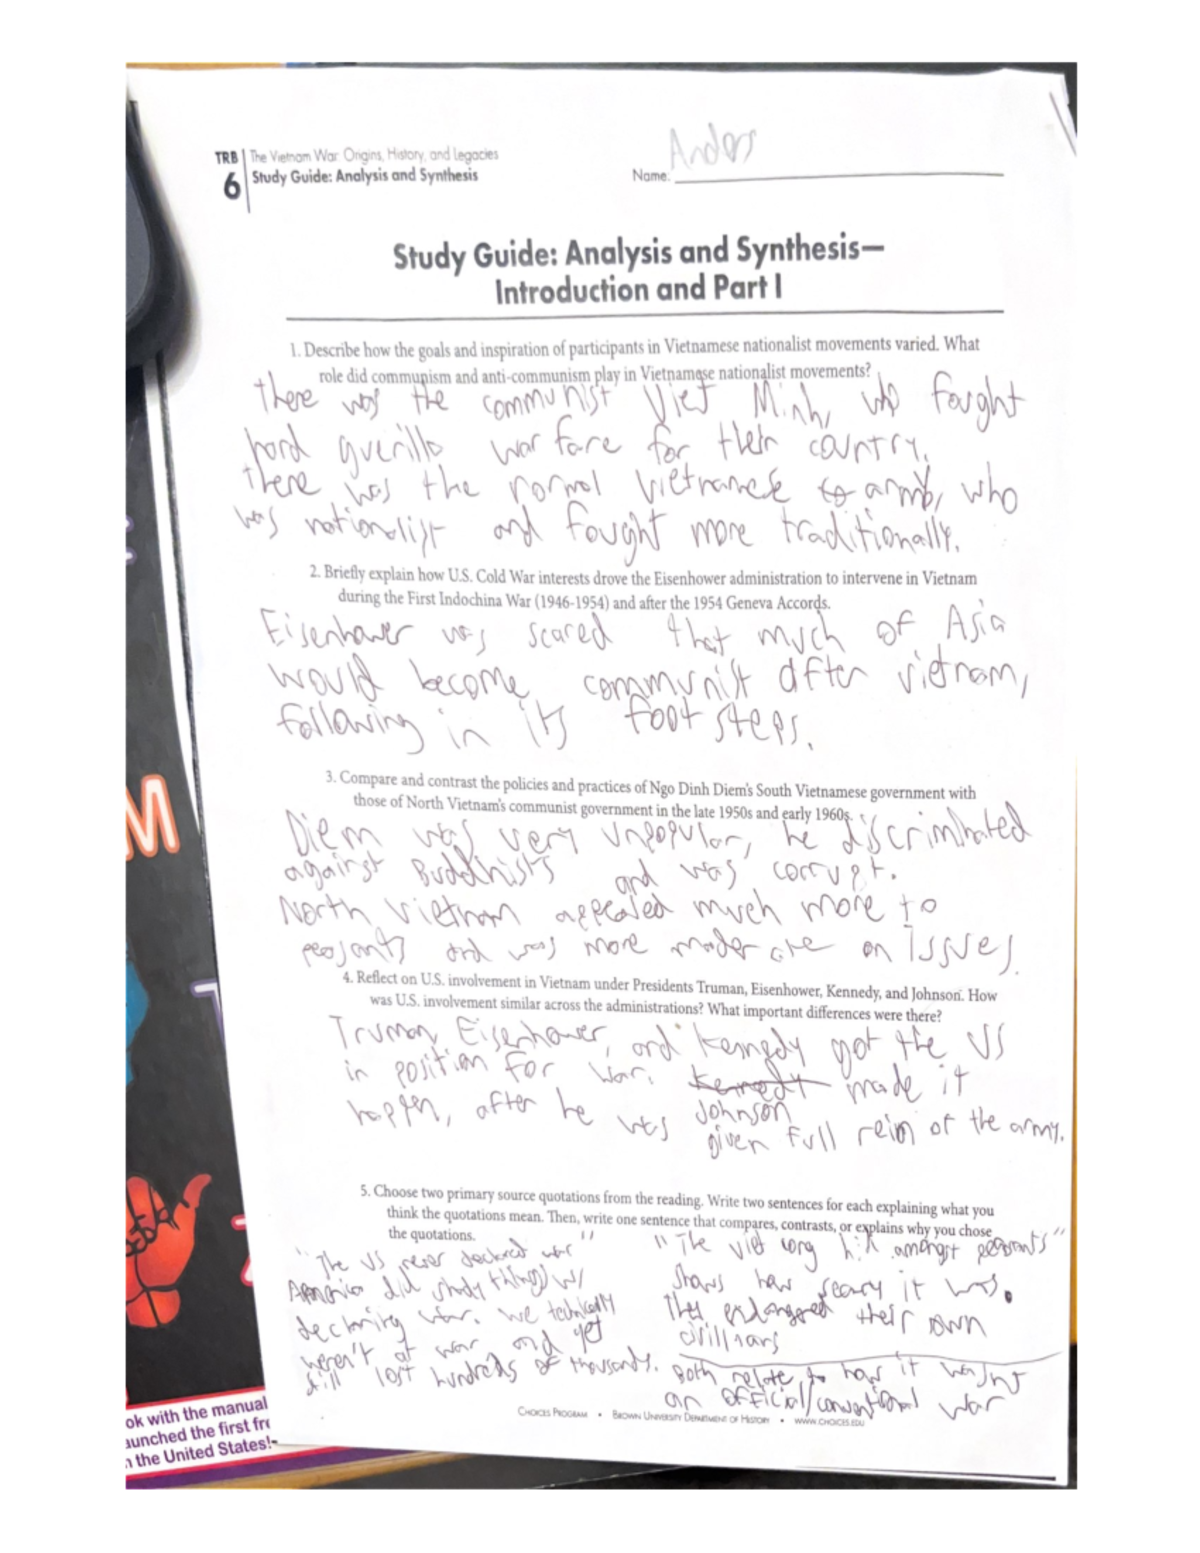 TRB The Vietnam War: Origins, History, and Legacies
6 Study Guide: Analysis and Synthesis
Name: Anders
Study Guide: Analysis and Synthesis—
Introduction and Part I
1. Describe how the goals and inspiration of participants in Vietnamese nationalist movements varied. What
role did communism and anti-communism play in Vietnamese nationalist movements?
there was the communist Viet Minh, who fought
hard guerilla warfare for their country.
there was the normal vietnamese army, who
was nationalist and fought more traditionally.
2. Briefly explain how U.S. Cold War interests drove the Eisenhower administration to intervene in Vietnam
during the First Indochina War (1946-1954) and after the 1954 Geneva Accords.
Eisenhower was scared that much of Asia
would become communist after vietnam,
following in its foot steps.
3. Compare and contrast the policies and practices of Ngo Dinh Diem's South Vietnamese government with
those of North Vietnam's communist government in the late 1950s and early 1960s.
Diem was very unpopular, he discriminated
against Buddhists and was corrupt.
North Vietnam appealed much more to
peasants and was more moderate on issues.
4. Reflect on U.S. involvement in Vietnam under Presidents Truman, Eisenhower, Kennedy, and Johnson. How
was U.S. involvement similar across the administrations? What important differences were there?
Truman, Eisenhower, and Kennedy got the US
in position for war. Kennedy made it
Johnson
happen, after he was given full rein of the army.
5. Choose two primary source quotations from the reading. Write two sentences for each explaining what you
think the quotations mean. Then, write one sentence that compares, contrasts, or explains why you chose
the quotations.
"The US never declared war"
America did shady things w/
declaring war. We technically
weren't at war and yet
still lost hundreds of thousands.
"The viet cong hid amongst peasants"
shows how scary it was.
They endangered their own
civillians
Both relate to how it wasnt
an official/conventional war
CHOICES PROGRAM • BROWN UNIVERSITY DEPARTMENT OF HISTORY • WWW.CHOICES.EDU
M
ok with the manual
aunched the first fre
n the United States!